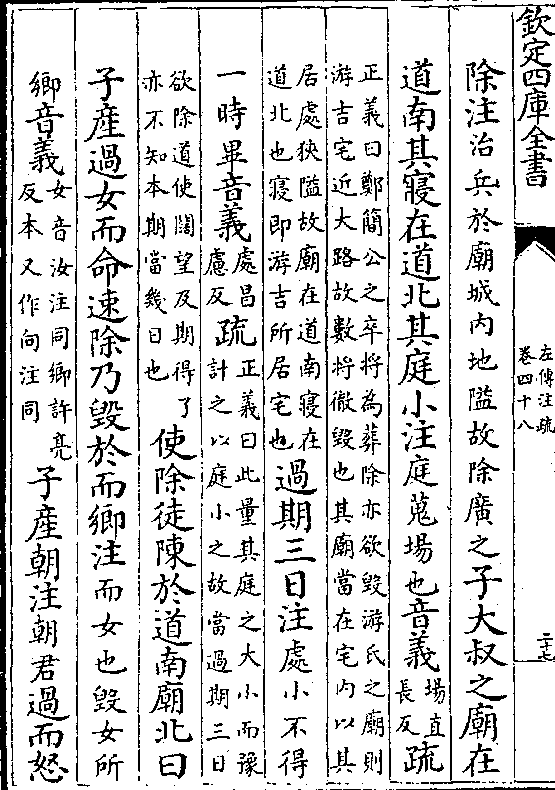 欽定四庫全書
左傳注疏
卷四十八
二十七
除注治兵於廟城内地隘故除廣之子大叔之廟在
道南其寢在道北其庭小注庭蒐場也音義場直長反疏
正義曰鄭簡公之卒將為葬除亦欲毀游氏之廟則
游吉宅近大路故數將徹毀也其廟當在宅内以其
居處狹隘故廟在道南寢在
道北也寢即游吉所居宅也過期三日注處小不得
一時畢音義處昌慮反疏正義曰此量其庭之大小而豫
計之以庭小之故當過期三日
欲除道使闊望及期得了
亦不知本期當幾日也使除徒陳於道南廟北曰
子產過女而命速除乃毀於而鄉注而女也毀女所
鄉音義女音汝注同鄉許亮
反本又作向注同子產朝注朝君過而怒